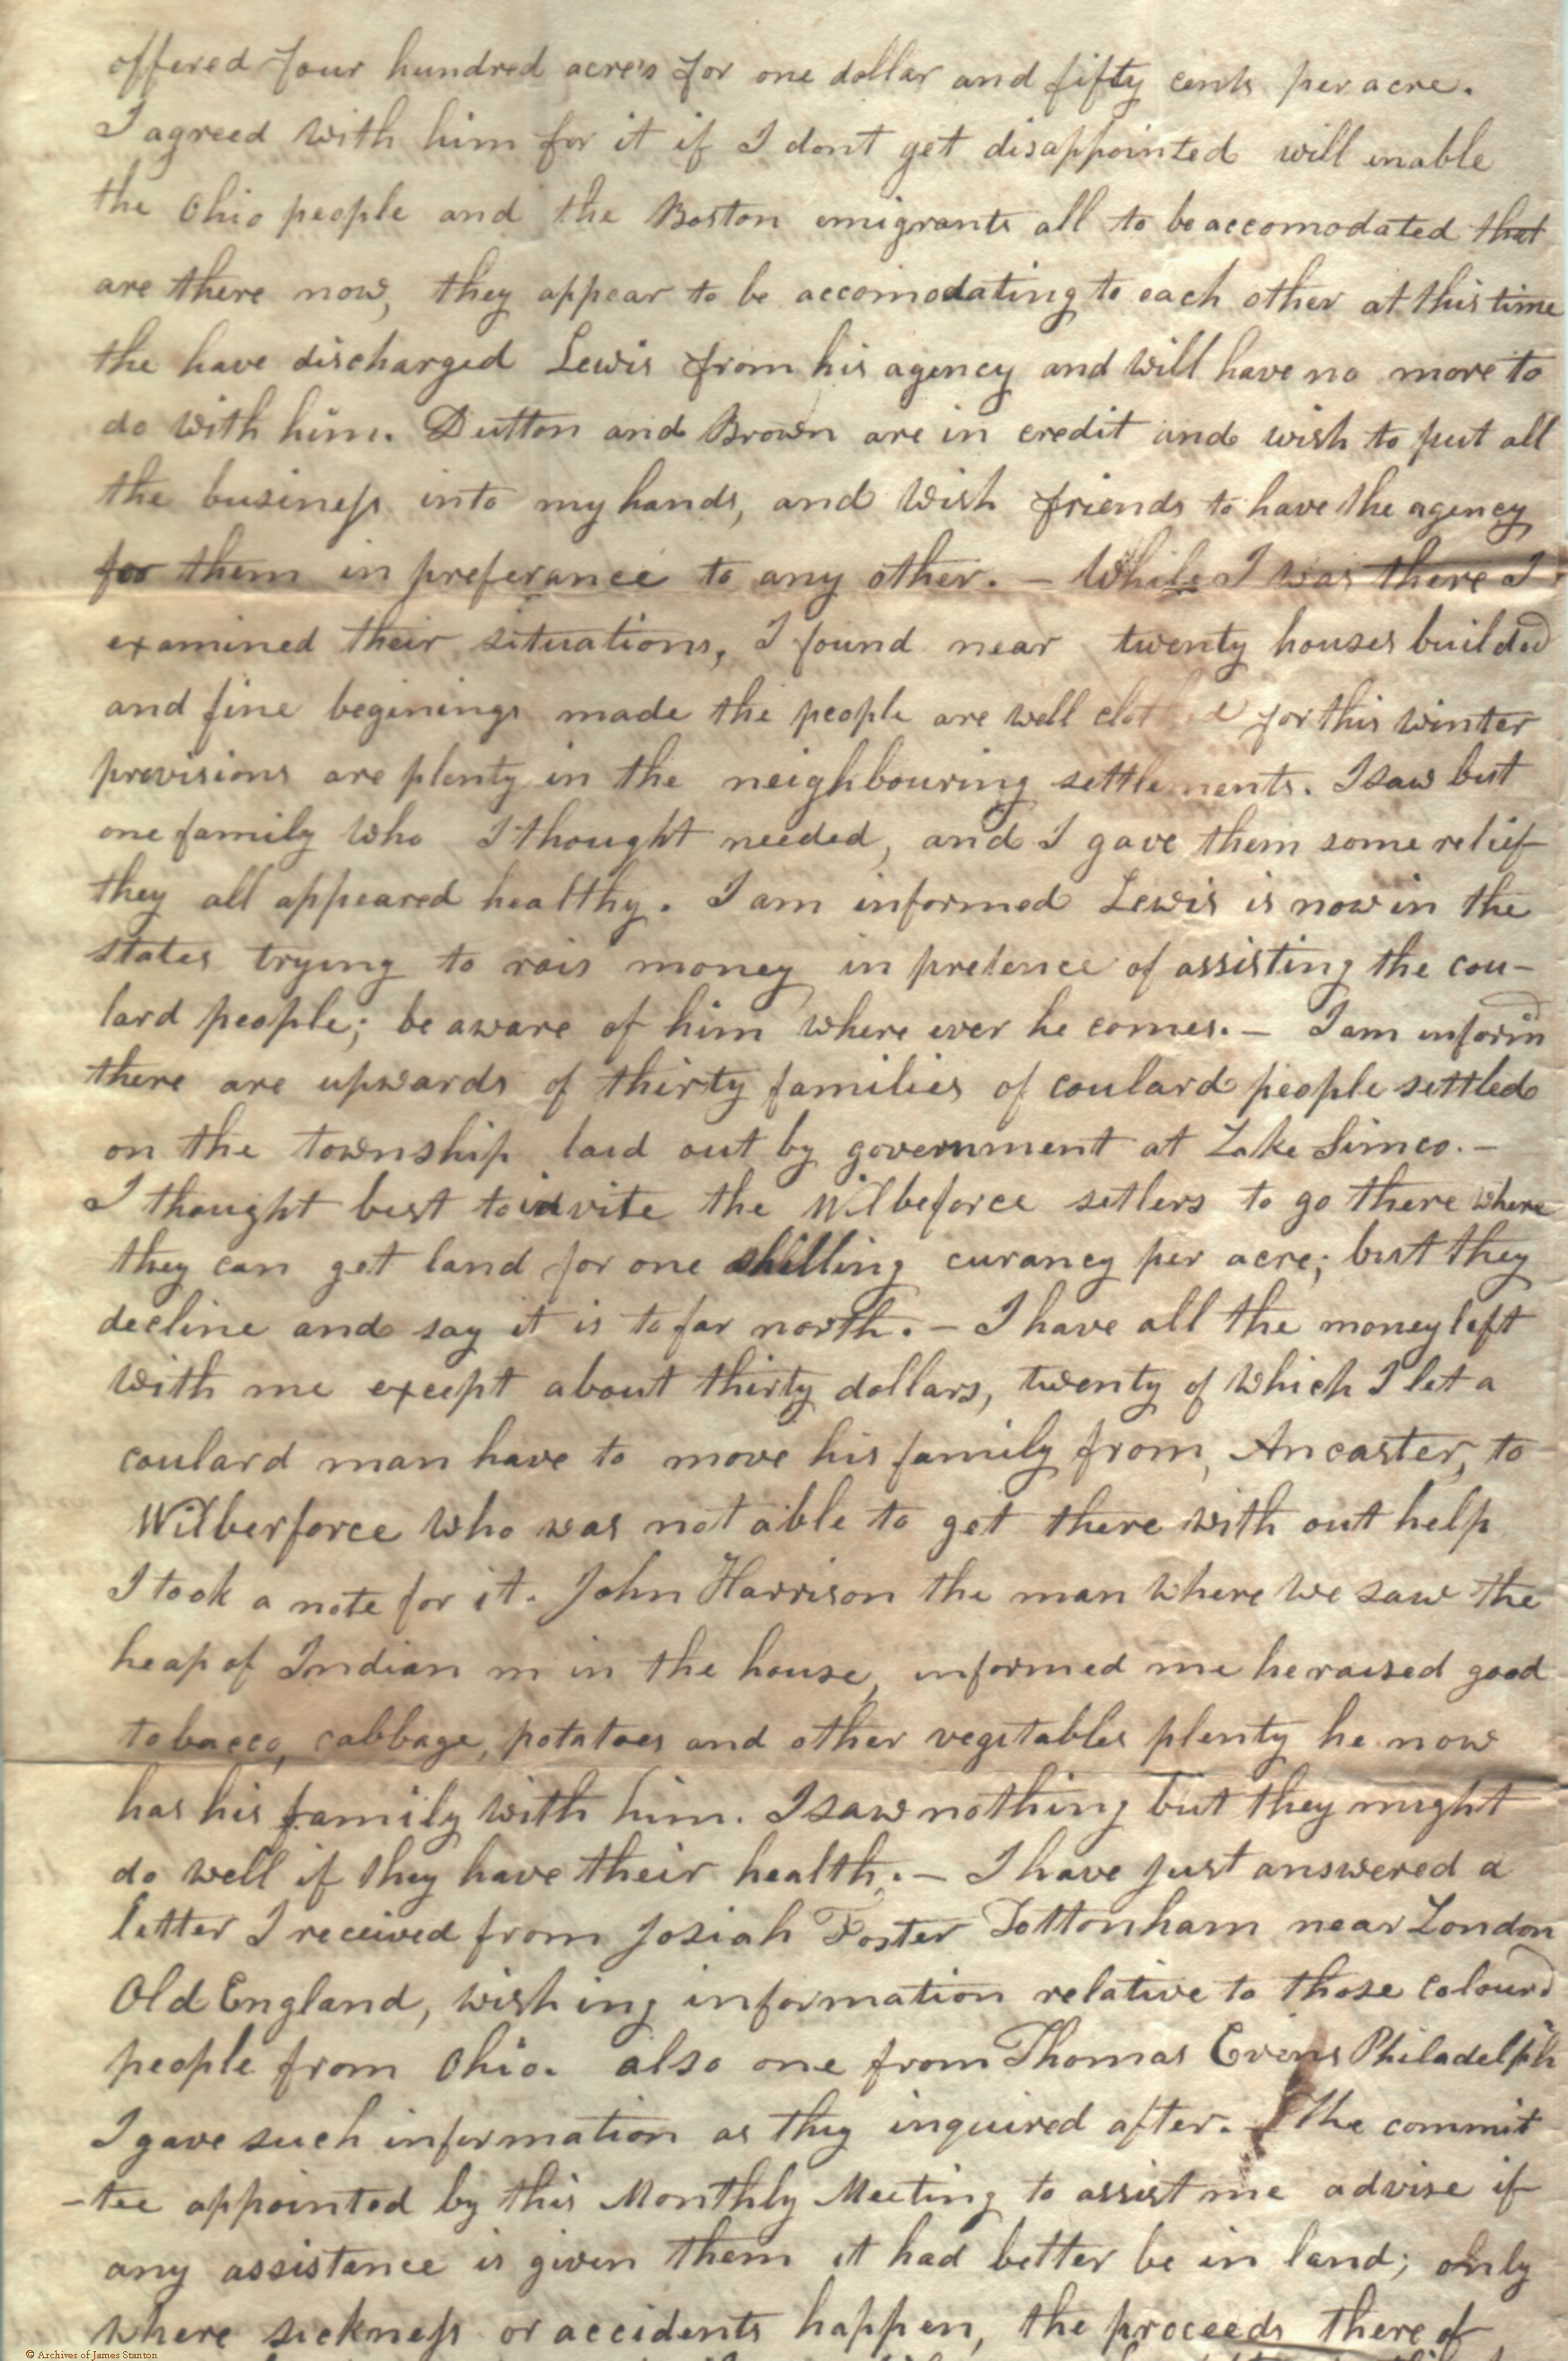 offered four hundred acre's for one dollar and fifty cents per acre.
I agreed with him for it if I dont get disappointed will enable
the Ohio people and the Boston emigrants all to be accomodated that
are there now, they appear to be accomodating to each other at this time
the have discharged Lewis from his agency and will have no more to
do with him. Dutton and Brown are in credit and wish to put all
the business into my hands, and wish friends to have the agency
for them in preferance to any other. – While I was there I
examined their situations, I found near twenty houses builded
and fine beginings made the people are well for this winter
provisions are plenty in the neighbouring settlements. I saw but
one family who I thought needed, and I gave them some relief
they all appeared healthy. I am informed Lewis is now in the
states trying to rais money in pretence of assisting the cou-
lard people; be aware of him where ever he comes. – I am informd
there are upwards of thirty families of coulard people settled
on the township laid out by government at Lake Simco. –
I thought best to invite the Wilbeforce setlers to go there where
they can get land for one shilling curancy per acre; but they
decline and say it is to far north. – I have all the money left
with me except about thirty dollars, twenty of which I let a
coulard man have to move his family from, Ancaster, to
Wilberforce who was not able to get there with out help
I took a note for it. John Harrison the man where we saw the
heap of Indian in the house, informed me he raised good
tobacco, cabbage, potatoes and other vegetables plenty he now
has his family with him. I saw nothing but they might
do well if they have their health. – I have just answered a
letter I received from Josiah Foster Tottonham near London
Old England, wishing information relative to those colourd
people from Ohio. also one from Thomas Evens Philadelph
I gave such information as they inquired after. – The commit
-tee appointed by this Monthly Meeting to assist me advise if
any assistance is given them it had better be in land; only
where sickness or accidents happen, the proceeds there of
© Archives of James Stanton